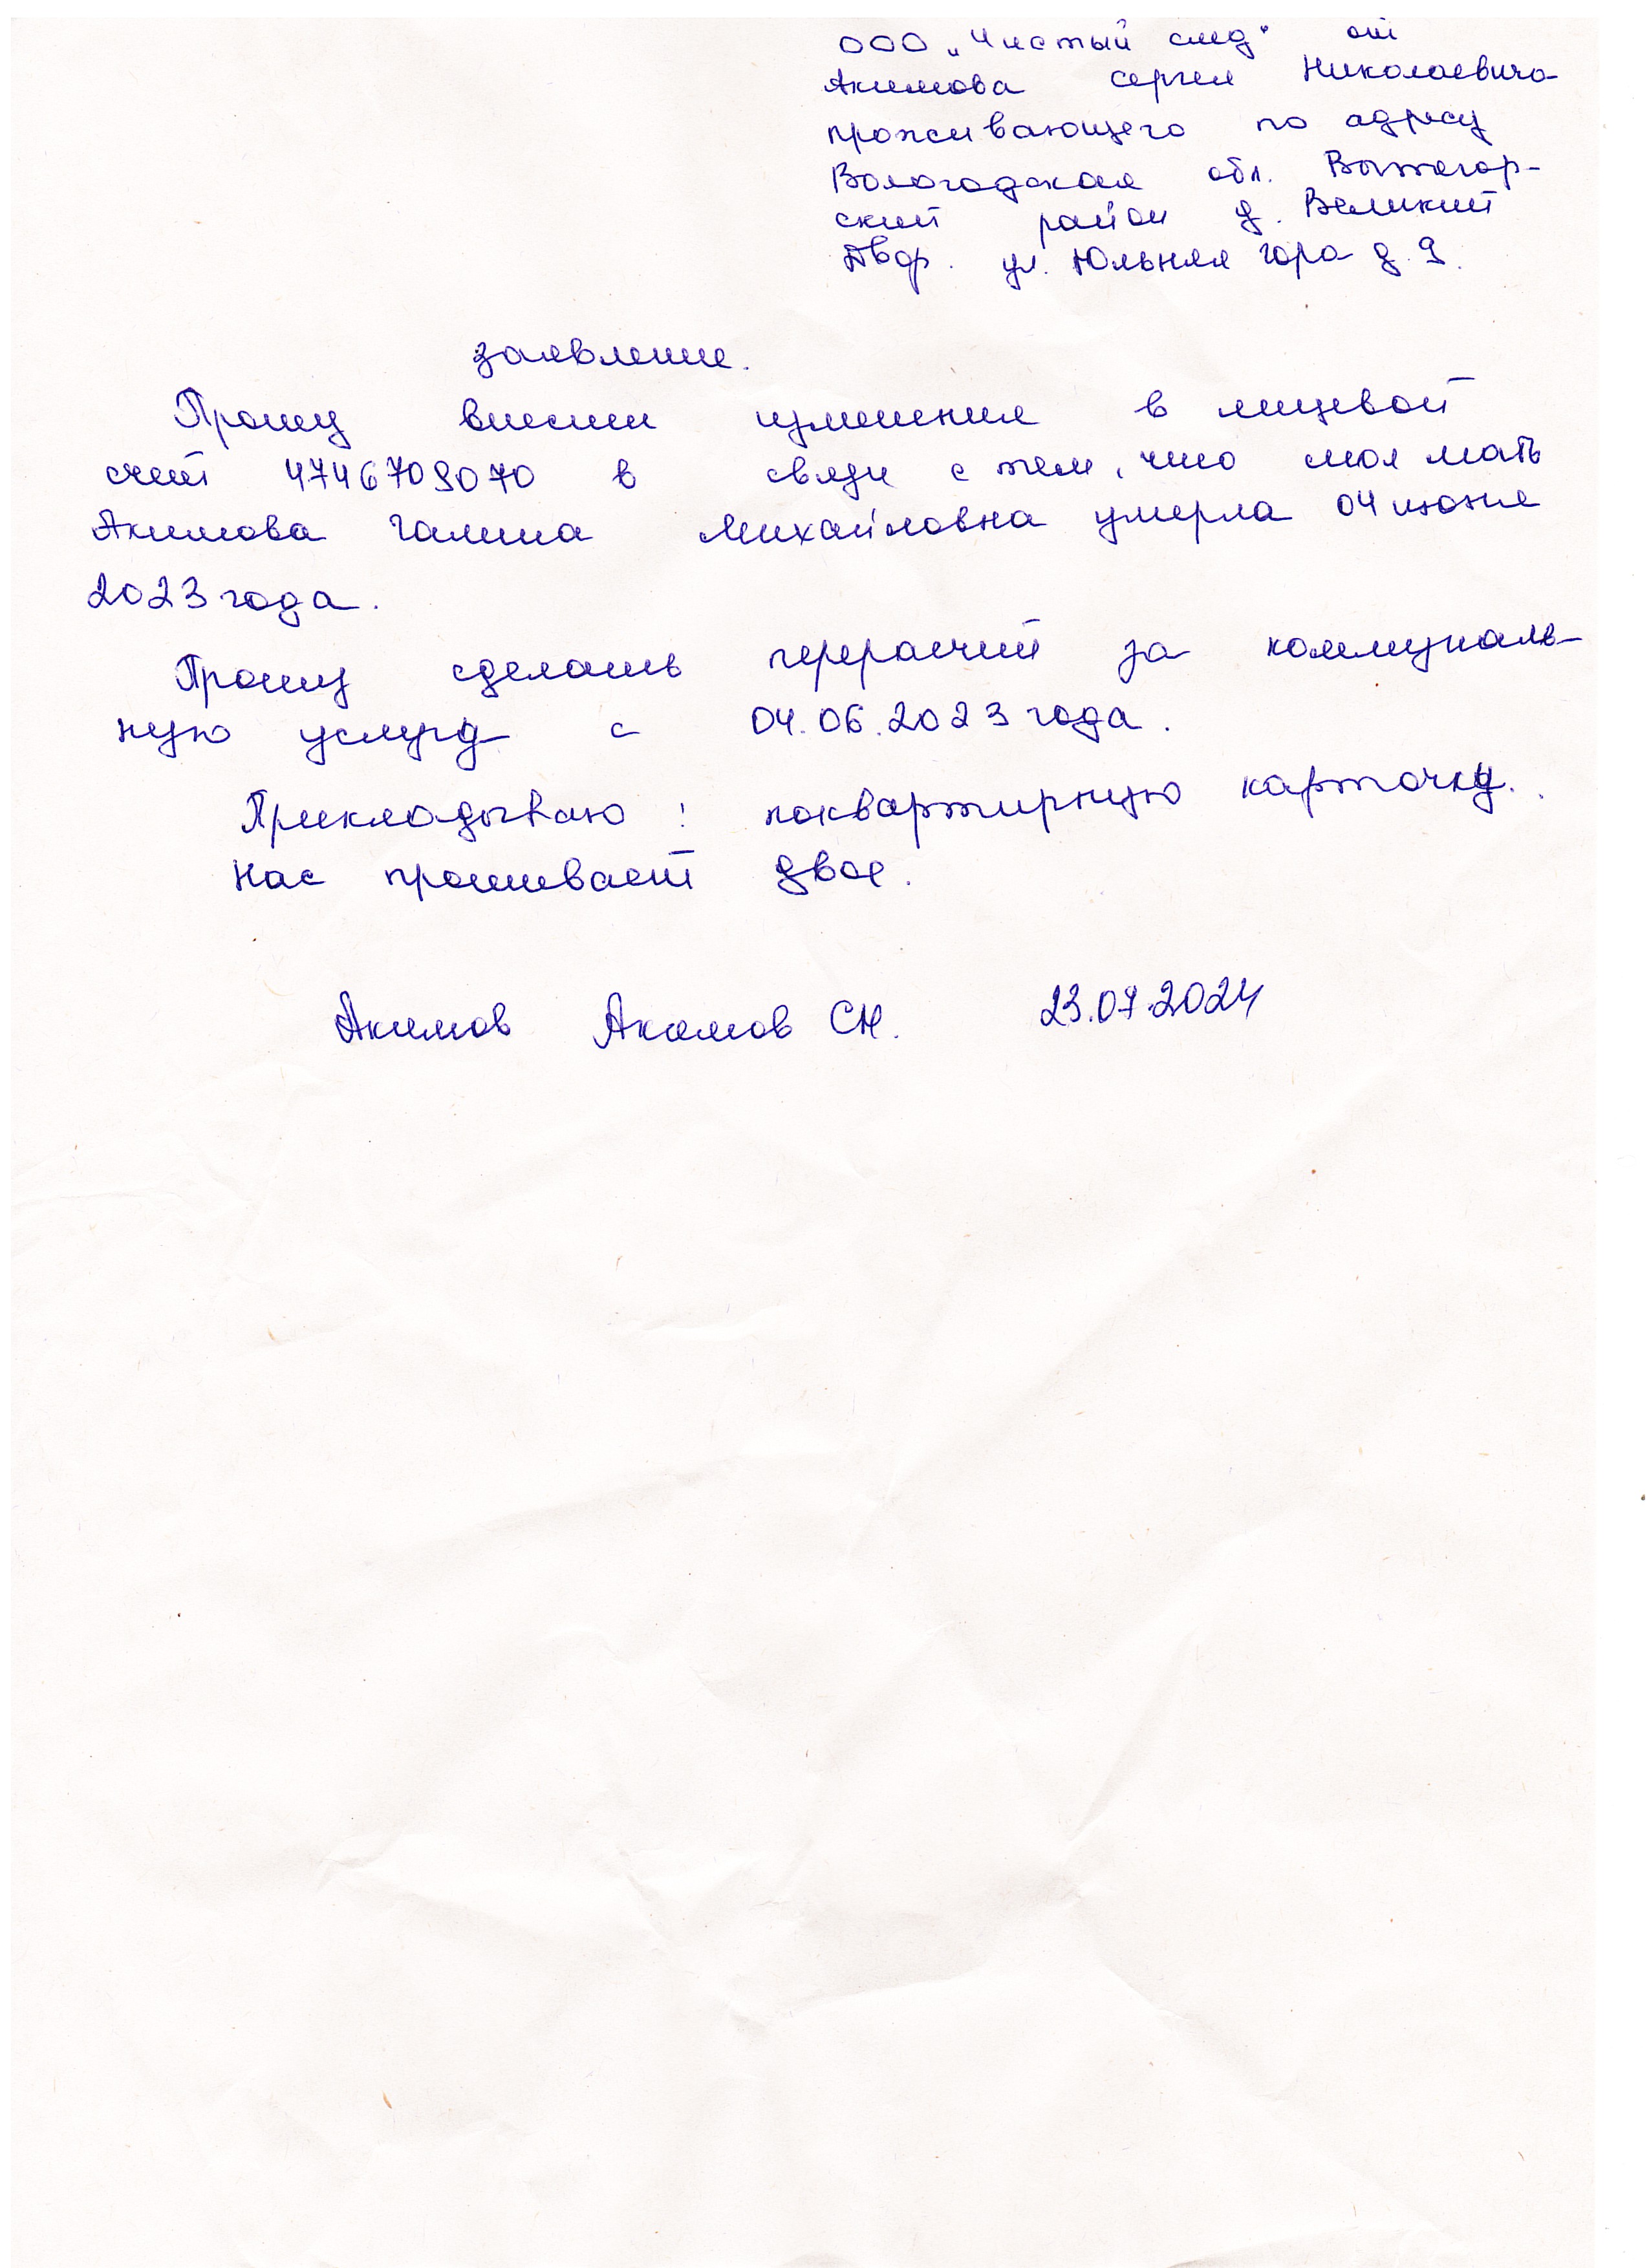 ООО „Чистый след" от
Акимова Сергея Николаевича
проживающего по адресу
Вологодская обл. Вытегор-
ский район д. Великий
Двор. ул. Юльняя гора д. 9.
заявление.
Прошу внести изменения в лицевой
счет 4746709070 в связи с тем, что моя мать
Акимова Галина Михайловна умерла 04 июня
2023 года.
Прошу сделать перерасчет за коммуналь-
ную услугу с 04.06.2023 года.
Прикладываю: поквартирную карточку.
Нас проживает двое.
Акимов Акимов С.Н. 23.07.2024